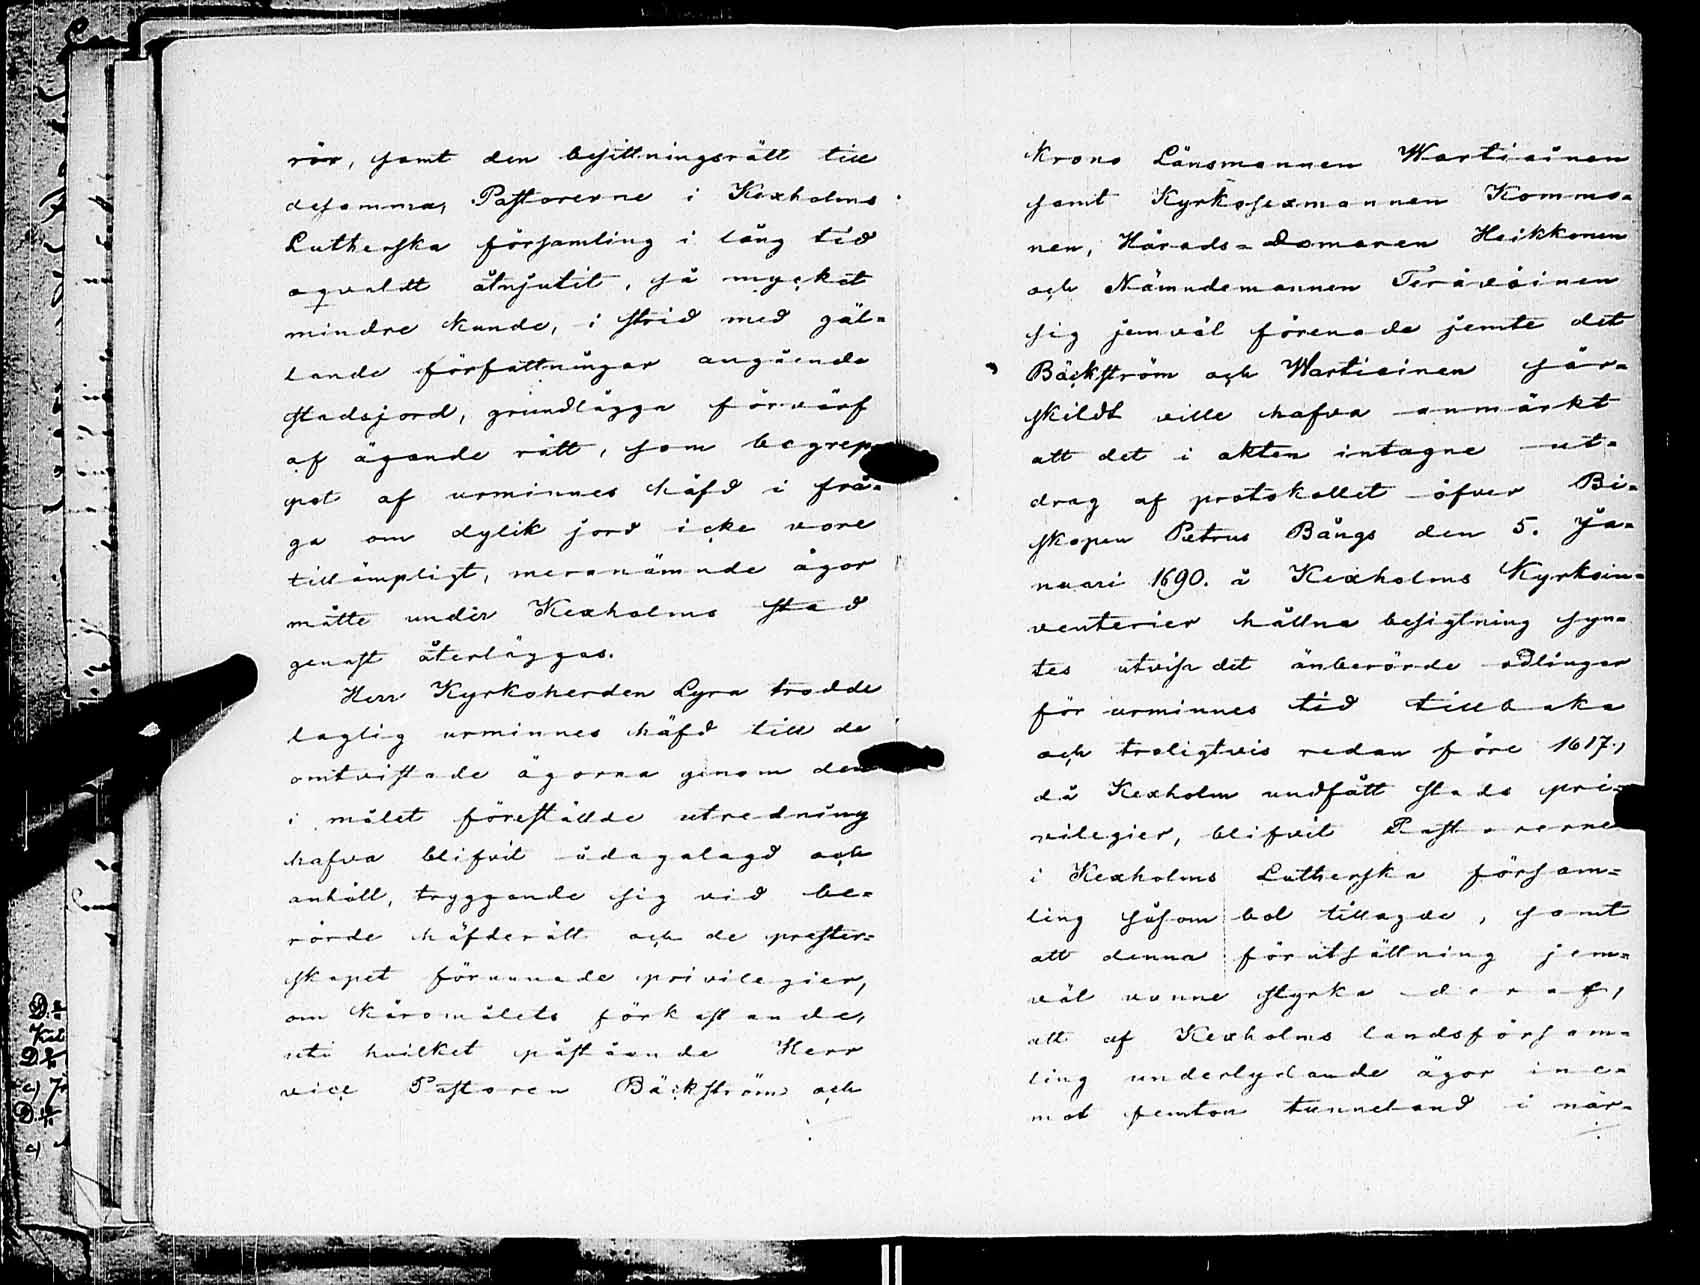 rör, samt den besittningsrätt till
desamma, Pastorerne i Kexholms
Lutherska församling i lång tid
oqvaldt åtnjutit, så mycket
mindre kunde, i strid med gäl=
lande författningar angående
stadsjord, grundlägga förvärf
af ägande rätt, som begrep=
pet af urminnes häfd i frå=
ga om dylik jord icke vore
tillämpligt, meranämnde ägor
måtte under Kexholms stad
genast återläggas.
Herr Kyrkoherden Lyra trodde
laglig urminnes häfd till de
omtvistade ägorna genom den
i målet föreställde utredning
hafva blifvit ådagalagd och
anhöll, tryggande sig vid be=
rörde häfderätt och de prester=
skapet förunnade privilegier,
om käromålets förkastande,
uti hvilket påstående Herr
vice Pastoren Bäckström och
Krono Länsmannen Wartiainen
samt Kyrkosexmannen Kommo=
nen, Härads=Domaren Heikkonen
och Nämndemannen Teräväinen
sig jemväl förenade jemte det
Bäckström och Wartiainen sär=
skildt ville hafva anmärkt
att det i akten intagne ut=
drag af protokollet öfver Bi=
skopen Petrus Bångs den 5. Ja=
nuari 1690. å Kexholms Kyrkoin=
venterier hållna besigtning syn=
tes utvisa det änberörde odlingar
för urminnes tid tillbaka
och troligtvis redan före 1617.,
då Kexholm undfått stads pri=
vilegier, blifvit Pastorerne
i Kexholms Lutherska försam=
ling såsom bol tillagde, samt
att denna förutsättning jem=
väl vunne styrka deraf,
att af Kexholms landsförsam=
ling underlydande ägor ine=
mot femton tunneland i när=